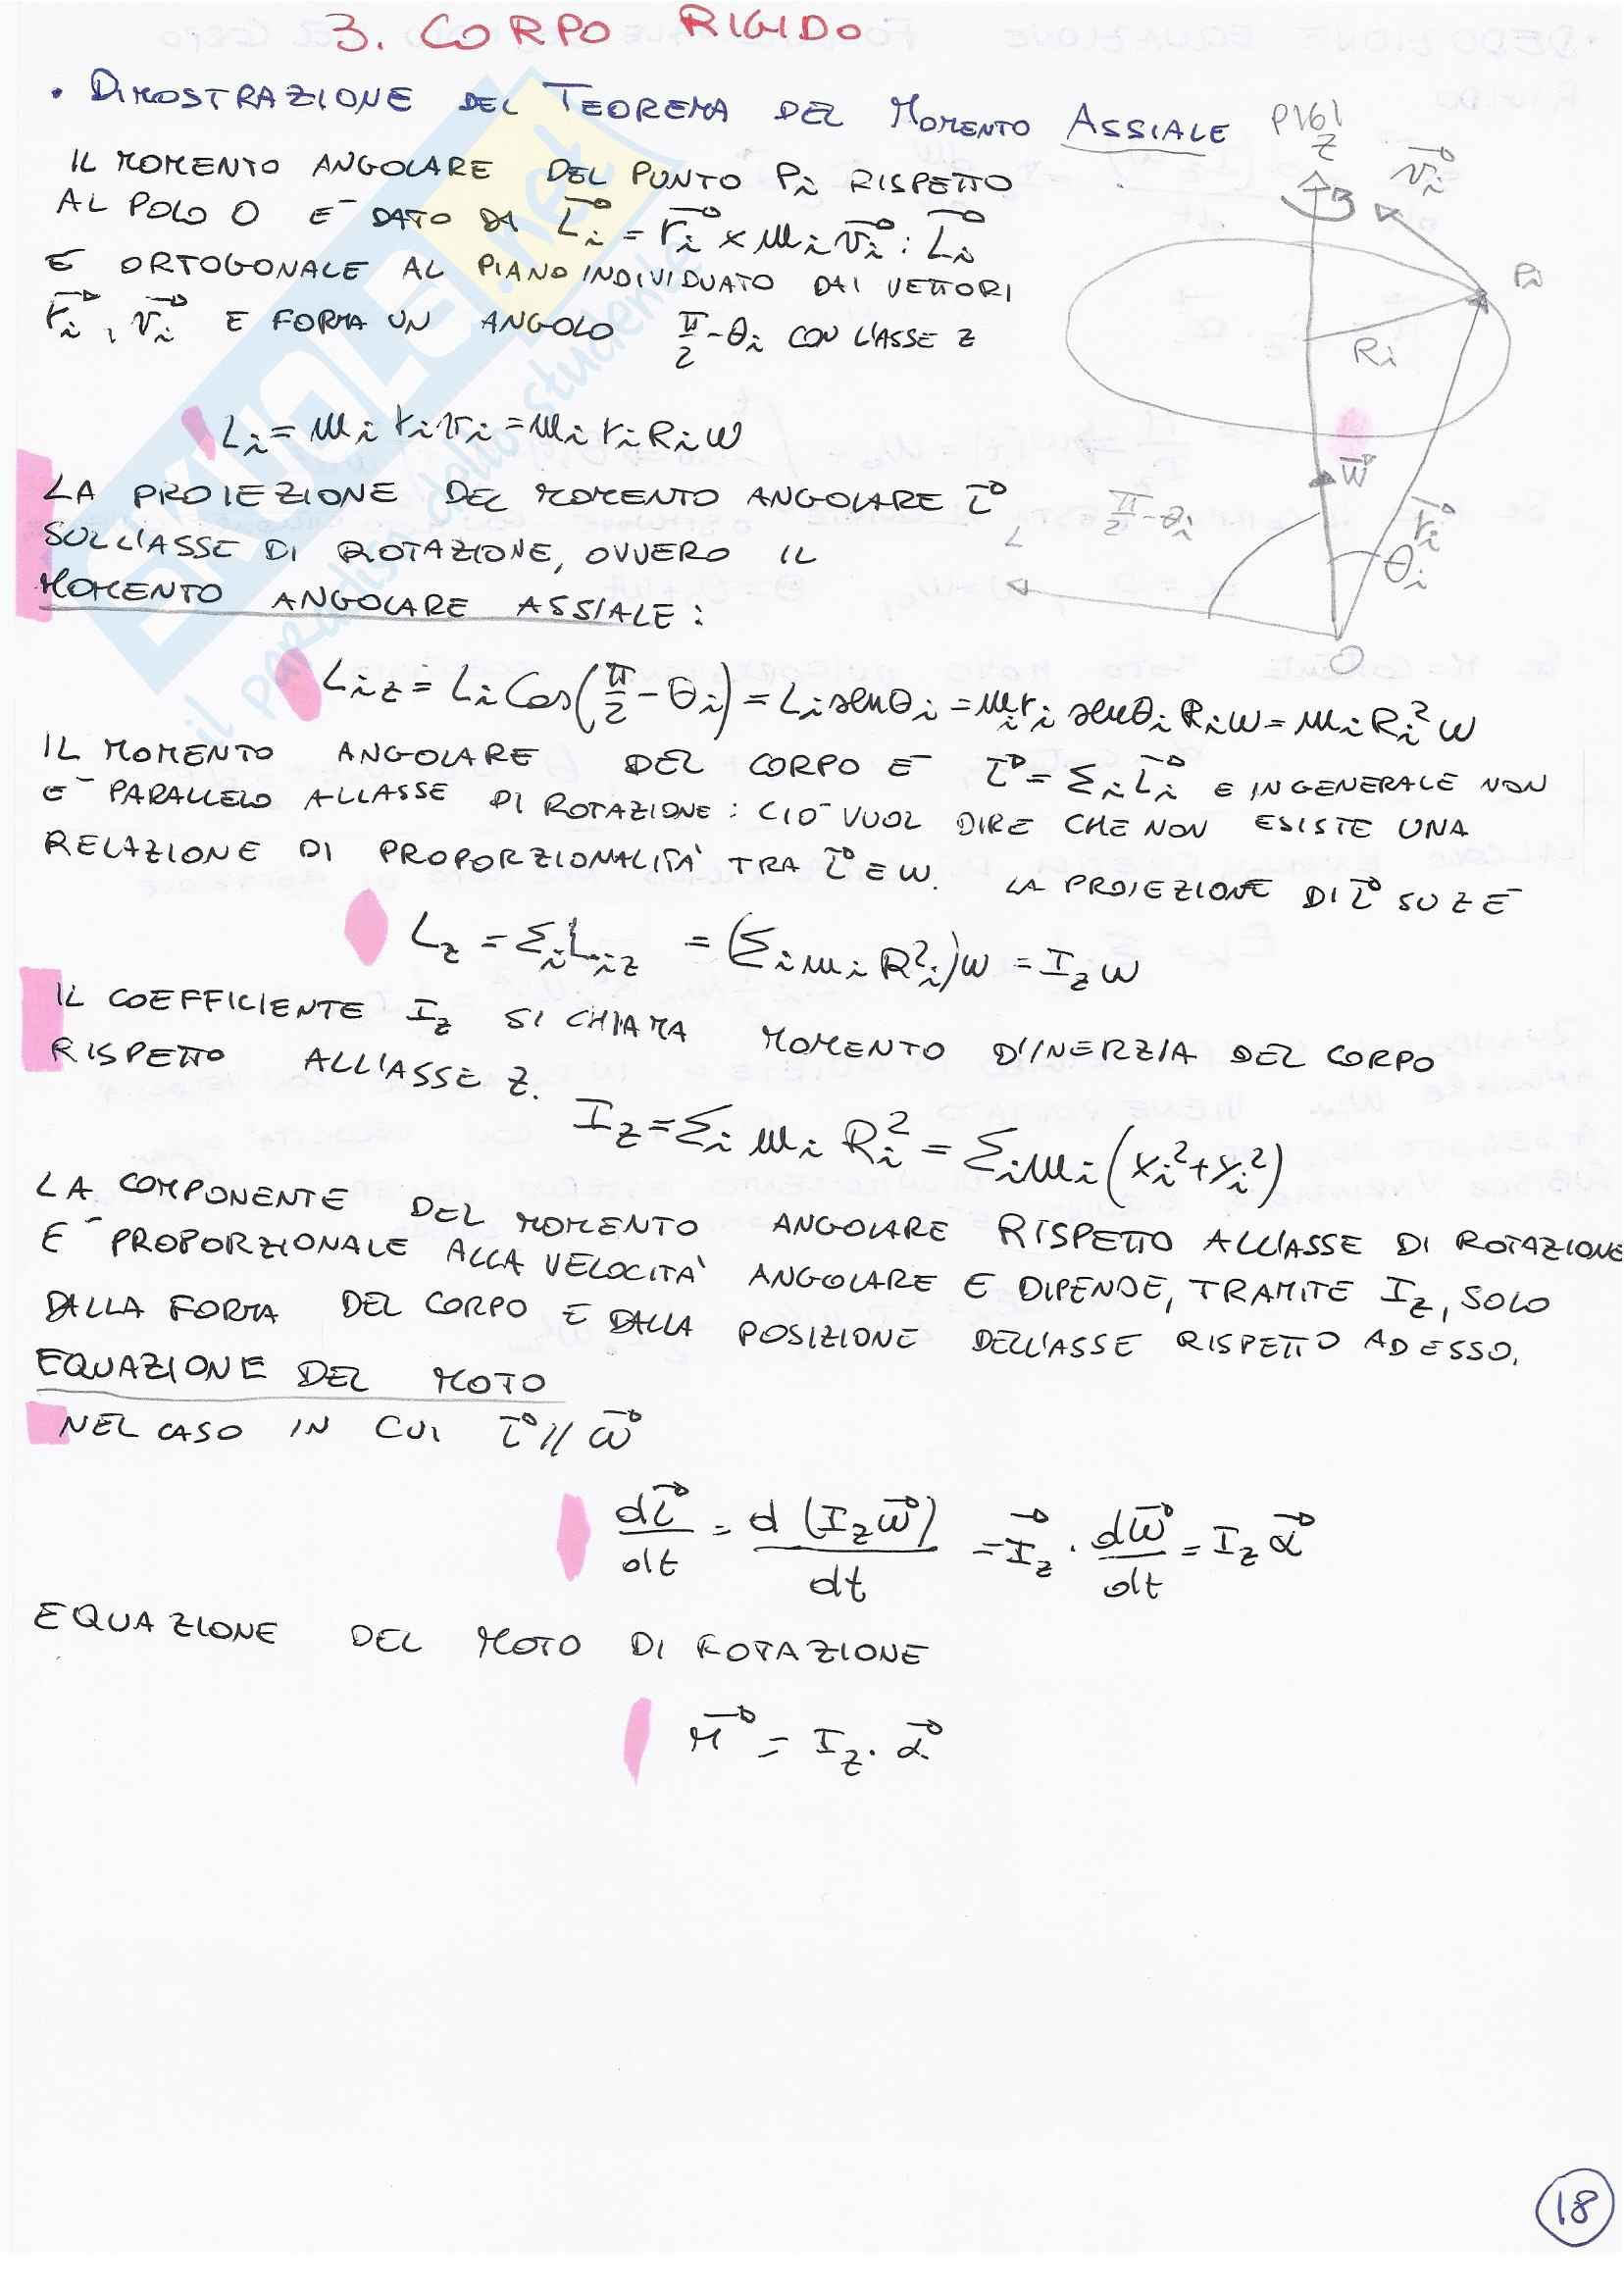 3. CORPO RIGIDO
• DIMOSTRAZIONE DEL TEOREMA DEL MOMENTO ASSIALE P161
IL MOMENTO ANGOLARE DEL PUNTO Pi RISPETTO
AL POLO O E' DATO DA L⃗i = r⃗i × mi v⃗i : L⃗i
E' ORTOGONALE AL PIANO INDIVIDUATO DAI VETTORI
r⃗i, v⃗i E FORMA UN ANGOLO π/2 - θi CON L'ASSE Z
Li = mi ri vi = mi ri Ri w
LA PROIEZIONE DEL MOMENTO ANGOLARE L⃗
SULL'ASSE DI ROTAZIONE, OVVERO IL
MOMENTO ANGOLARE ASSIALE:
z
v⃗i
Pi
Ri
w⃗
r⃗i
π/2 - θi
θi
L
O
Liz = Li Cos(π/2 - θi) = Li senθi = mi ri senθi Ri w = mi Ri² w
IL MOMENTO ANGOLARE DEL CORPO E' L⃗ = Σi L⃗i E IN GENERALE NON
E' PARALLELO ALL'ASSE DI ROTAZIONE: CIO' VUOL DIRE CHE NON ESISTE UNA
RELAZIONE DI PROPORZIONALITA' TRA L⃗ E W. LA PROIEZIONE DI L⃗ SU Z E'
Lz = Σi Liz = (Σi mi Ri²)w = Iz w
IL COEFFICIENTE Iz SI CHIAMA MOMENTO D'INERZIA DEL CORPO
RISPETTO ALL'ASSE Z.
Iz = Σi mi Ri² = Σi mi (xi² + yi²)
LA COMPONENTE DEL MOMENTO ANGOLARE RISPETTO ALL'ASSE DI ROTAZIONE
E' PROPORZIONALE ALLA VELOCITA' ANGOLARE E DIPENDE, TRAMITE Iz, SOLO
DALLA FORMA DEL CORPO E DALLA POSIZIONE DELL'ASSE RISPETTO AD ESSO.
EQUAZIONE DEL MOTO
NEL CASO IN CUI L⃗ // w⃗
dL⃗/dt = d(Iz w⃗)/dt = I⃗z · dw⃗/dt = Iz α⃗
EQUAZIONE DEL MOTO DI ROTAZIONE
M⃗ = Iz · α⃗
18
SKUOLA.net
il paradiso dello studente